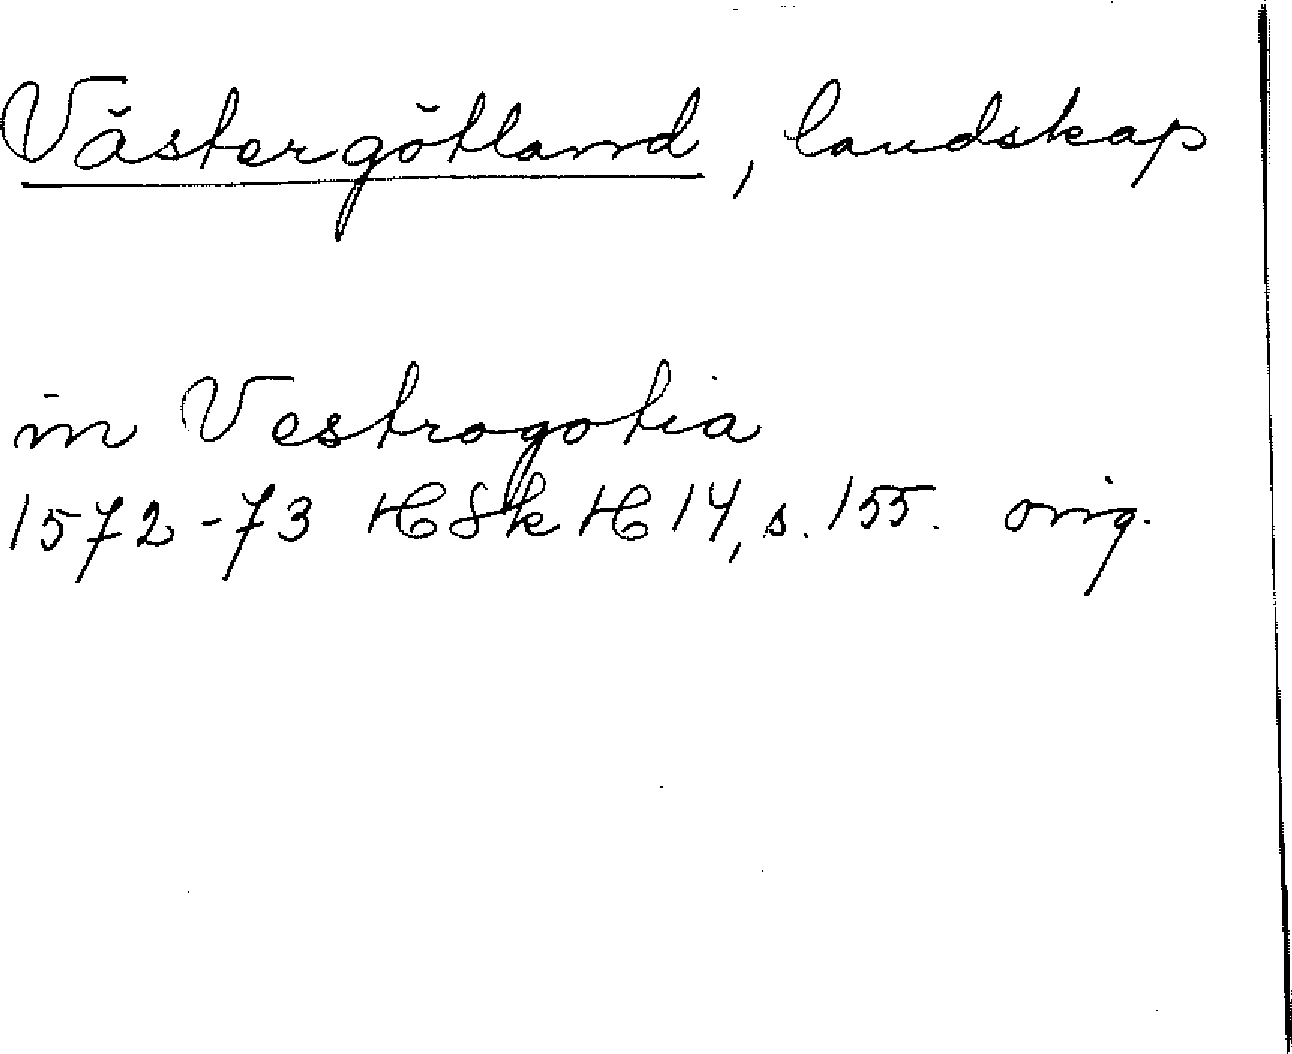 Västergötland, landskap
in Vestrogotia
1572-73 HSk H 14, s. 155. orig.